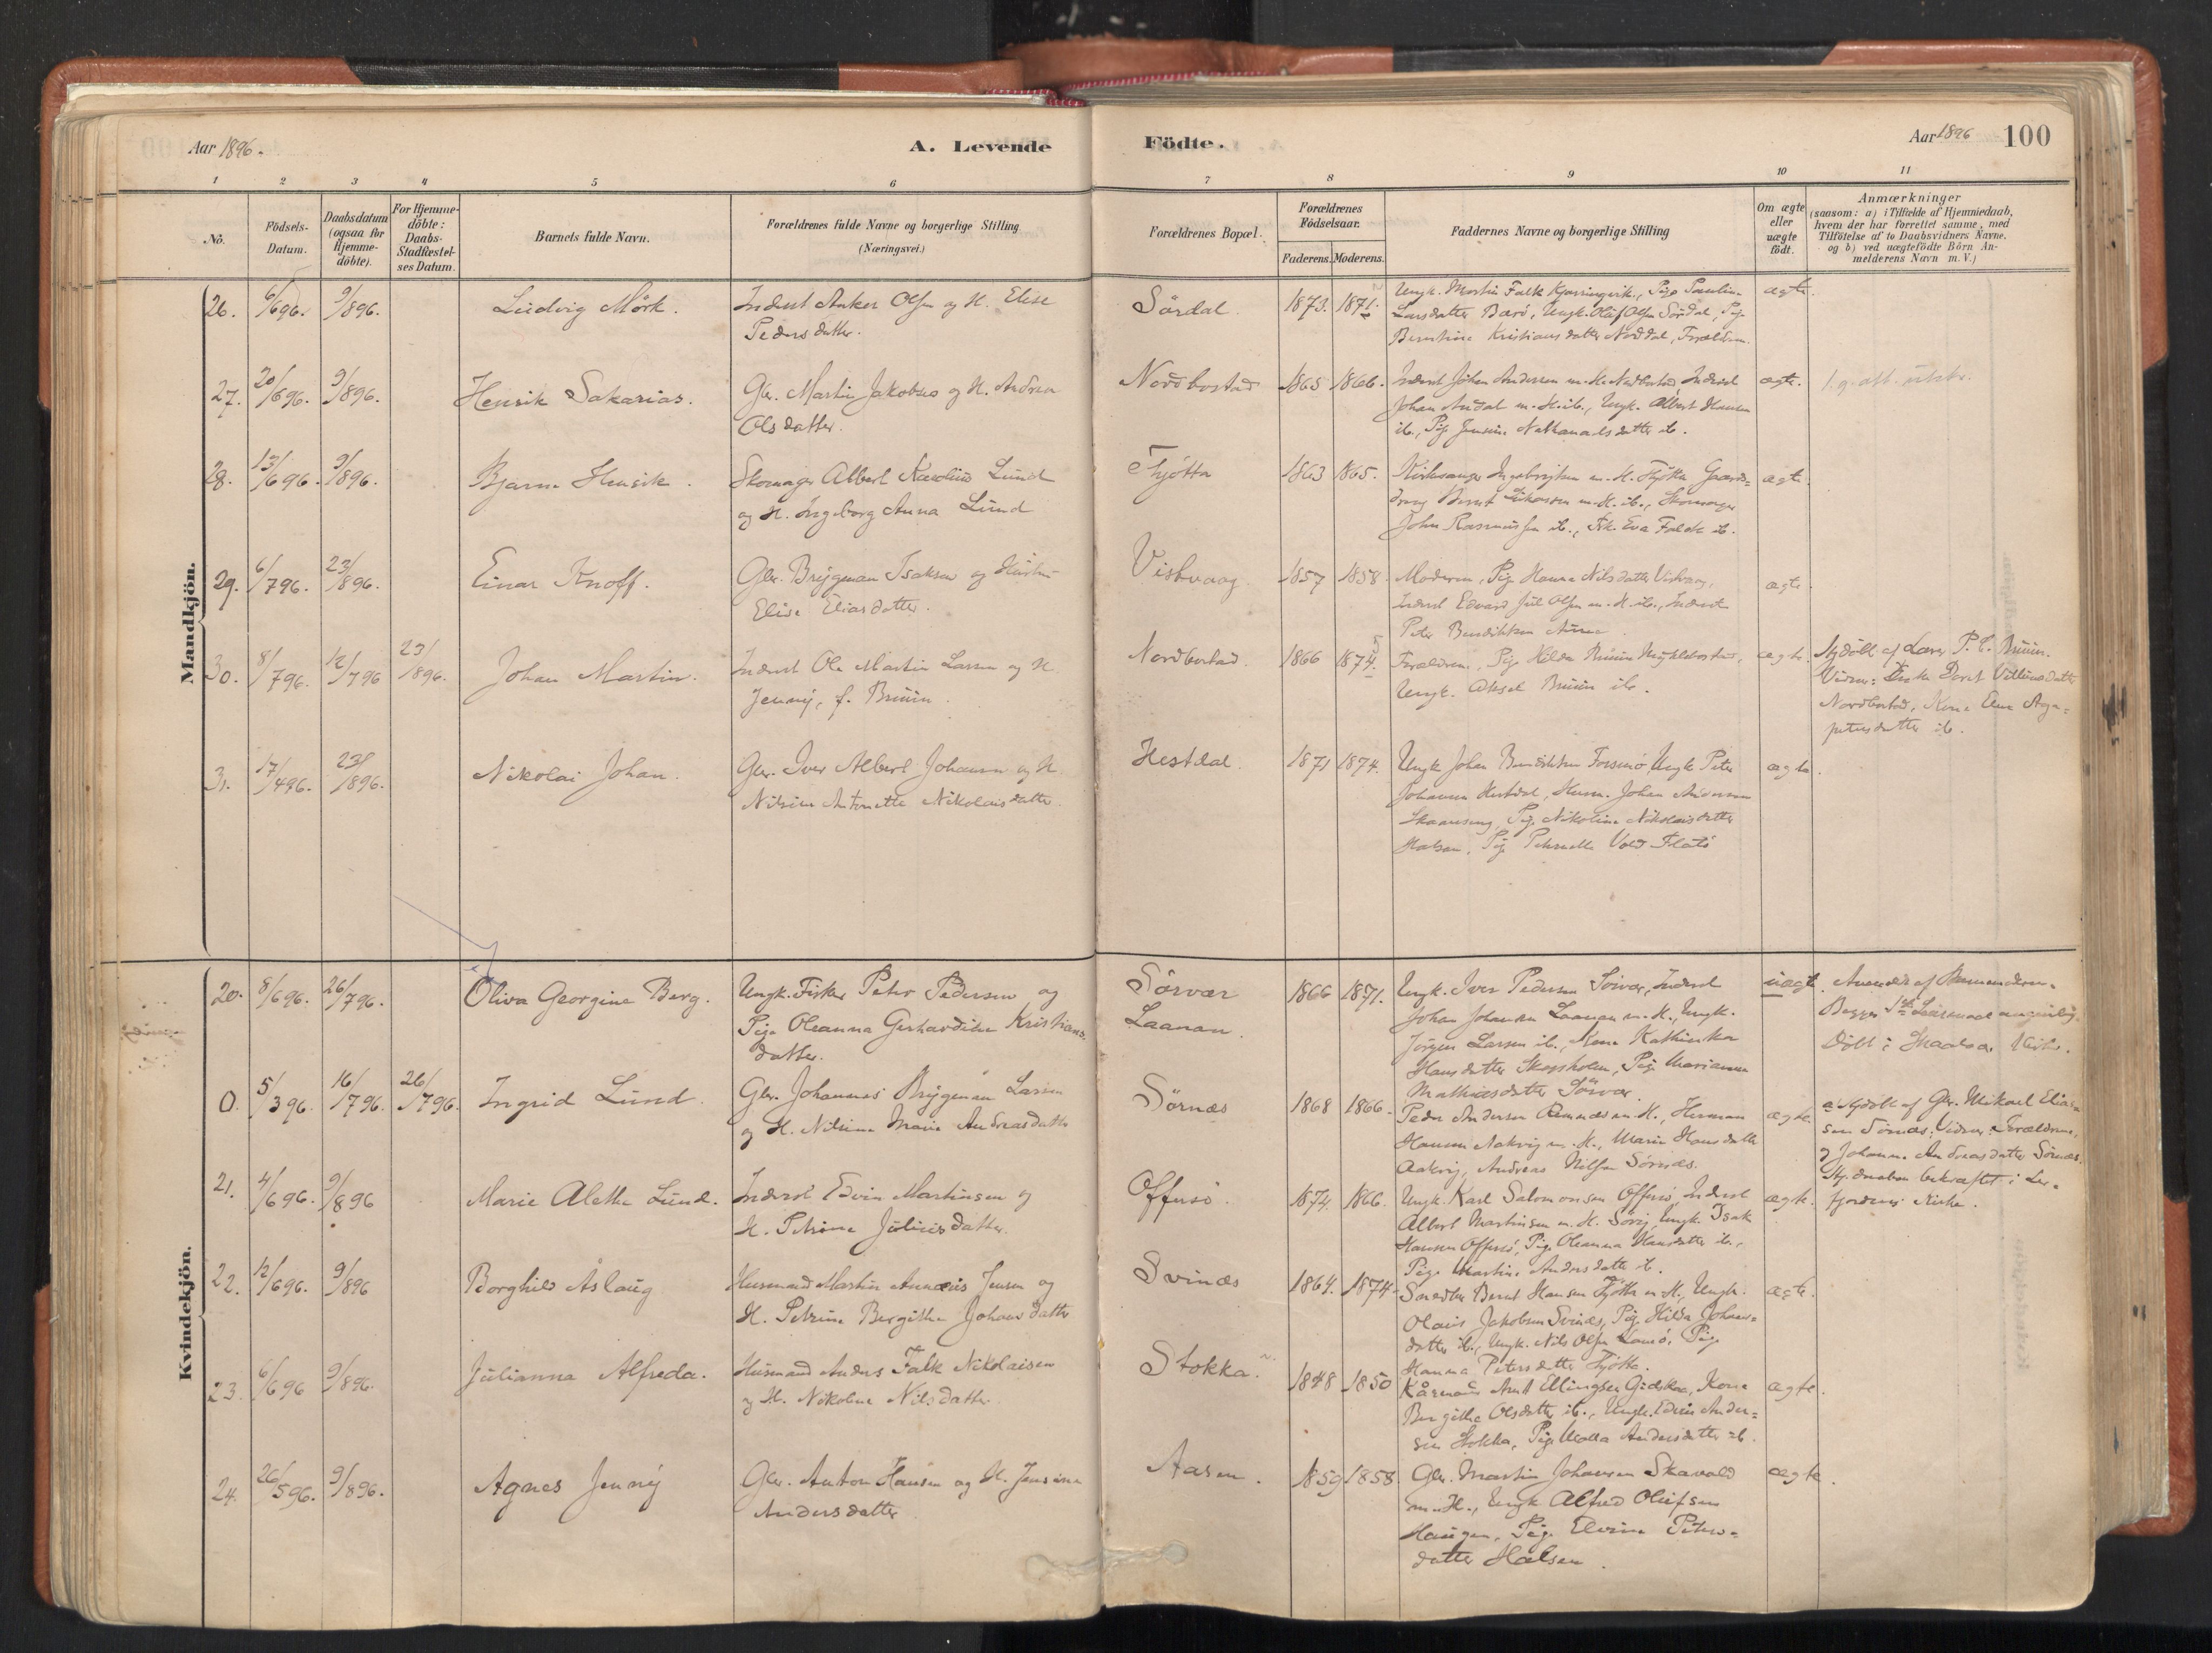 Aar 1896.
A. Levende
Födte.
Aar 1896
100
1 2 3 4 5 6 7 8 9 10 11
No.
Födsels-
Datum.
Daabsdatum
(ogsaa for
Hjemme-
döbte).
For Hjemme-
döbte:
Daabs-
Stadfæstel-
ses Datum.
Barnets fulde Navn.
Forældrenes fulde Navne og borgerlige Stilling
(Næringsvei.)
Forældrenes Bopæl.
Forældrenes
Födselsaar.
Faderens. Moderens.
Faddernes Navne og borgerlige Stilling
Om ægte
eller
uægte
födt.
Anmærkninger
(saasom: a) i Tilfælde af Hjemmedaab,
hvem der har forrettet samme, med
Tilföielse af to Daabsvidners Navne.
og b) ved uægtefödte Börn An-
melderens Navn m. V.)
Mandkjön.
26. 6/696. 9/896. Ludvig Mörk. Inderst Anker Olsen og H. Elise
Pedersdatter.
Sördal. 1873. 1871. Ungk. Martin Falk Kjærringvik., Pige Paulin-
Larsdatter Barö, Ungk. Oluf Olsen Sördal, Pig.
Berntine Kristiansdatter Norddal, Forældren.
ægte.
27. 20/696. 9/896. Henrik Sakarias. Gbr. Martin Jakobsen og H. Andrea
Olsdatter.
Nordbostad 1865 1866. Inderst Johan Andersen m. H. Nordbostad, Inderst
Johan m. H. ib., Ungk. Albert Hansen
ib., Pige Jensine Nathanaelsdatter ib.
ægte.
28. 13/696. 9/896. Bjarne Henrik. Skomager Albert Karolius Lund
og H. Ingeborg Anna Lund
Thjötta 1863 1865. Kirkesanger Ingebrigtsen m. H. Tjötta Gaards-
Bernt m. H. ib., Skomager
John Rasmussen ib., Frk. Eva Falck ib.
ægte
29. 6/796. 23/896. Einar Knoff. Gbr. Brygman Isaksen og Hustru
Elise Eliasdatter.
Vistvaag. 1857 1858. Moderen, Pige Hanna Nilsdatter Vistvaag,
Inderst Edvard Jul Olsen m. H. ib., Inderst
Peter Bendiktsen
ægte.
30. 8/796. 12/796 23/896. Johan Martin. Inderst Ole Martin Larsen og H.
Jenny, f. Bruun.
Nordbostad. 1866 1874. Forældrene, Pige Hilda Bruun
Ungk. Aksel Bruun ib.
ægte. Hjdöbt af Lærer P. C. Bruun.
Vidner: Enke Doret Villumsdatter
Nordbostad, Kone Elen Aga-
petusdatter ib.
31. 17/496. 23/896. Nikolai Johan. Gbr. Iver Albert Johansen og H.
Nilsine Antonette Nikolaisdatter.
Hestdal. 1871 1874. Ungk. Johan Bendiktsen Forsmö, Ungk. Peter
Johansen Hestdal, Husm. Johan Andersen
Pige Nikoline Nikolaisdatter
Halsen, Pige Petrnella Vold Flatö
ægte.
Kvindekjön.
20. 8/696. 26/796. Oliva Georgine Berg. Ungk. Fisker Peter Pedersen og
Pige Oleanna Gerhardine Kristians-
datter.
Sörvær
Laanan. 1866 1871. Ungk. Iver Pedersen Sörvær, Inderst
Johan Johansen Laanan m. H., Ungk.
Jörgen Larsen ib., Kone Kathinka
Hansdatter Skogsholm, Pige Marianna
Mathiasdatter Sörvær.
uægt. Anmeldt af Barnemoderen.
Begges 1ste Leiermaal angivelig.
Döbt i Kirke.
0. 5/396. 16/796. 26/796. Ingrid Lund. Gbr. Johannes Brygman Larsen
og H. Nilsine Marie Andreasdatter
Sörnæs 1868 1866. Peder Andersen m. H., Herman
Hansen Aakvig m. H., Marie Hansdatter
Aakvig, Andreas Nilsen Sörnæs.
ægte. a) Hjdöbt af Gbr. Mikael Elias-
sen Sörnæs: Vidner: Forældrene,
og Johanna Andreasdatter Sörnæs.
Hj.daaben bekræftet i Lei-
fjordens Kirke.
21. 4/696. 9/896 Marie Alette Lund. Inderst Edvin Martinsen og
H. Petrine Juliusdatter.
Offersö. 1874. 1866. Ungk. Karl Salomonsen Offersö, Inderst
Albert Martinsen m. H. Sörig, Ungk. Isak
Hansen Offersö, Pige Oleanna Hansdatter ib.,
Pige Martine Andersdatter ib.
ægte.
22. 12/696. 9/896 Borghild Åslaug Husmand Martin Annæus Jensen og
H. Petrine Bergitha Johansdatter
Svinæs 1864. 1874. Snedker Bernt Hansen Tjötta m. H., Ungk.
Olaus Jakobsen Svinæs, Pige Hilda Johans-
datter ib., Ungk. Nils Olsen Pige
Hanna Petersdatter Tjötta.
ægte.
23. 6/696 9/896. Julianna Alfreda. Husmand Anders Falk Nikolaisen
og H. Nikoline Nilsdatter.
Stokka. 1848 1850 Kårmand Arnt Ellingsen Kone
Bergitha Olsdatter ib., Ungk. Edvin Ander-
sen Stokka, Pige Molla Andersdatter ib.
ægte.
24. 26/596. 9/896. Agnes Jenny Gbr. Anton Hansen og H. Jensine
Andersdatter
Aasen. 1859 1858 Gbr. Martin Johansen Skavold
m. H., Ungk. Alfred Olufsen
Haugen, Pige Elvine Peters-
datter Halsen.
ægte.